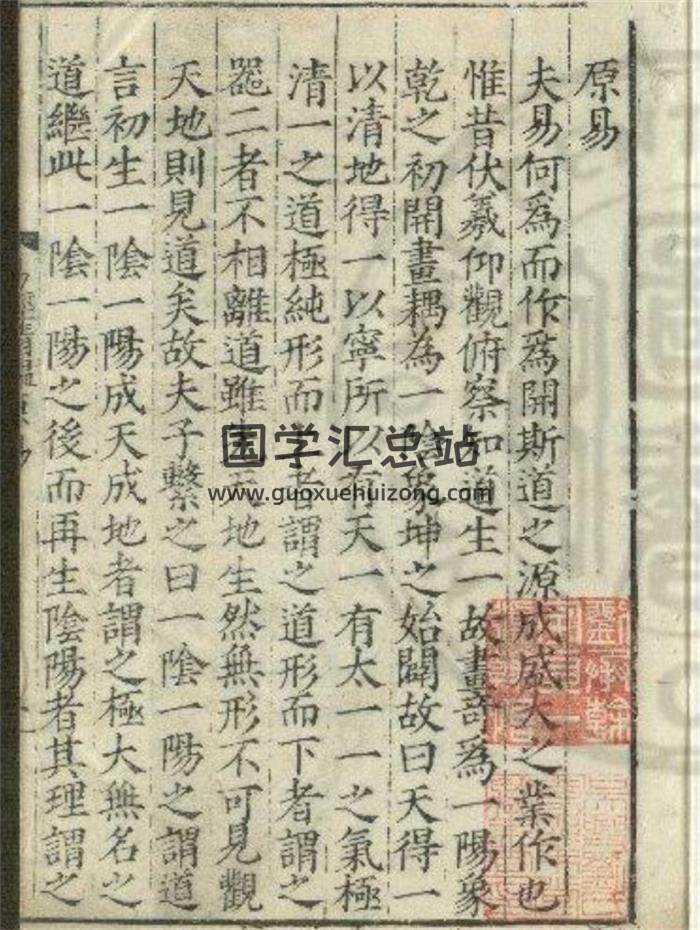 原易
夫易何為而作為開斯道之源成盛大之業作也
惟昔伏羲仰觀俯察知道生一故畫奇為一陽象
乾之初開畫耦為一陰象坤之始闢故曰天得一
以清地得一以寧所以有天一有太一一之氣極
清一之道極純形而上者謂之道形而下者謂之
器二者不相離道雖天地生然無形不可見觀
天地則見道矣故夫子繫之曰一陰一陽之謂道
言初生一陰一陽成天成地者謂之極大無名之
道繼此一陰一陽之後而再生陰陽者其理謂之
国学汇总站
www.guoxuehuizong.com